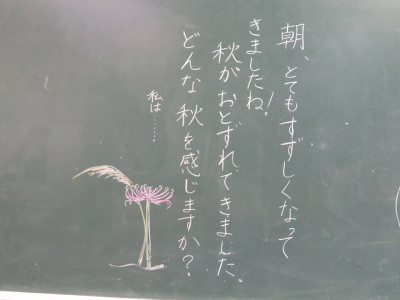 朝、とてもすずしくなって
きましたね!
秋がおとずれてきました。
どんな秋を感じますか?
私は……